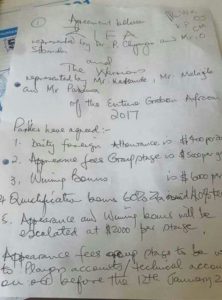 ① Agreement between
Z I F A
represented by Dr. P. Chiyangwa and Mr. O
and
The Warriors
represented by Mr. Katsande, Mr. Malajila
and Mr
of the Entire Gabon Afcon
2017
Parties have agreed :-
1. Daily foreign allowance is $400 per day
2. Appearance fees Group stage is $5000 per
3. Winning Bonus is $
4. Qualification bonus 60%
5. Appearance and Winning bonus will be
escalated at $2000 per stage.
Appearance fees group stage to be
to Players accounts/technical accounts
on or before the 12th January